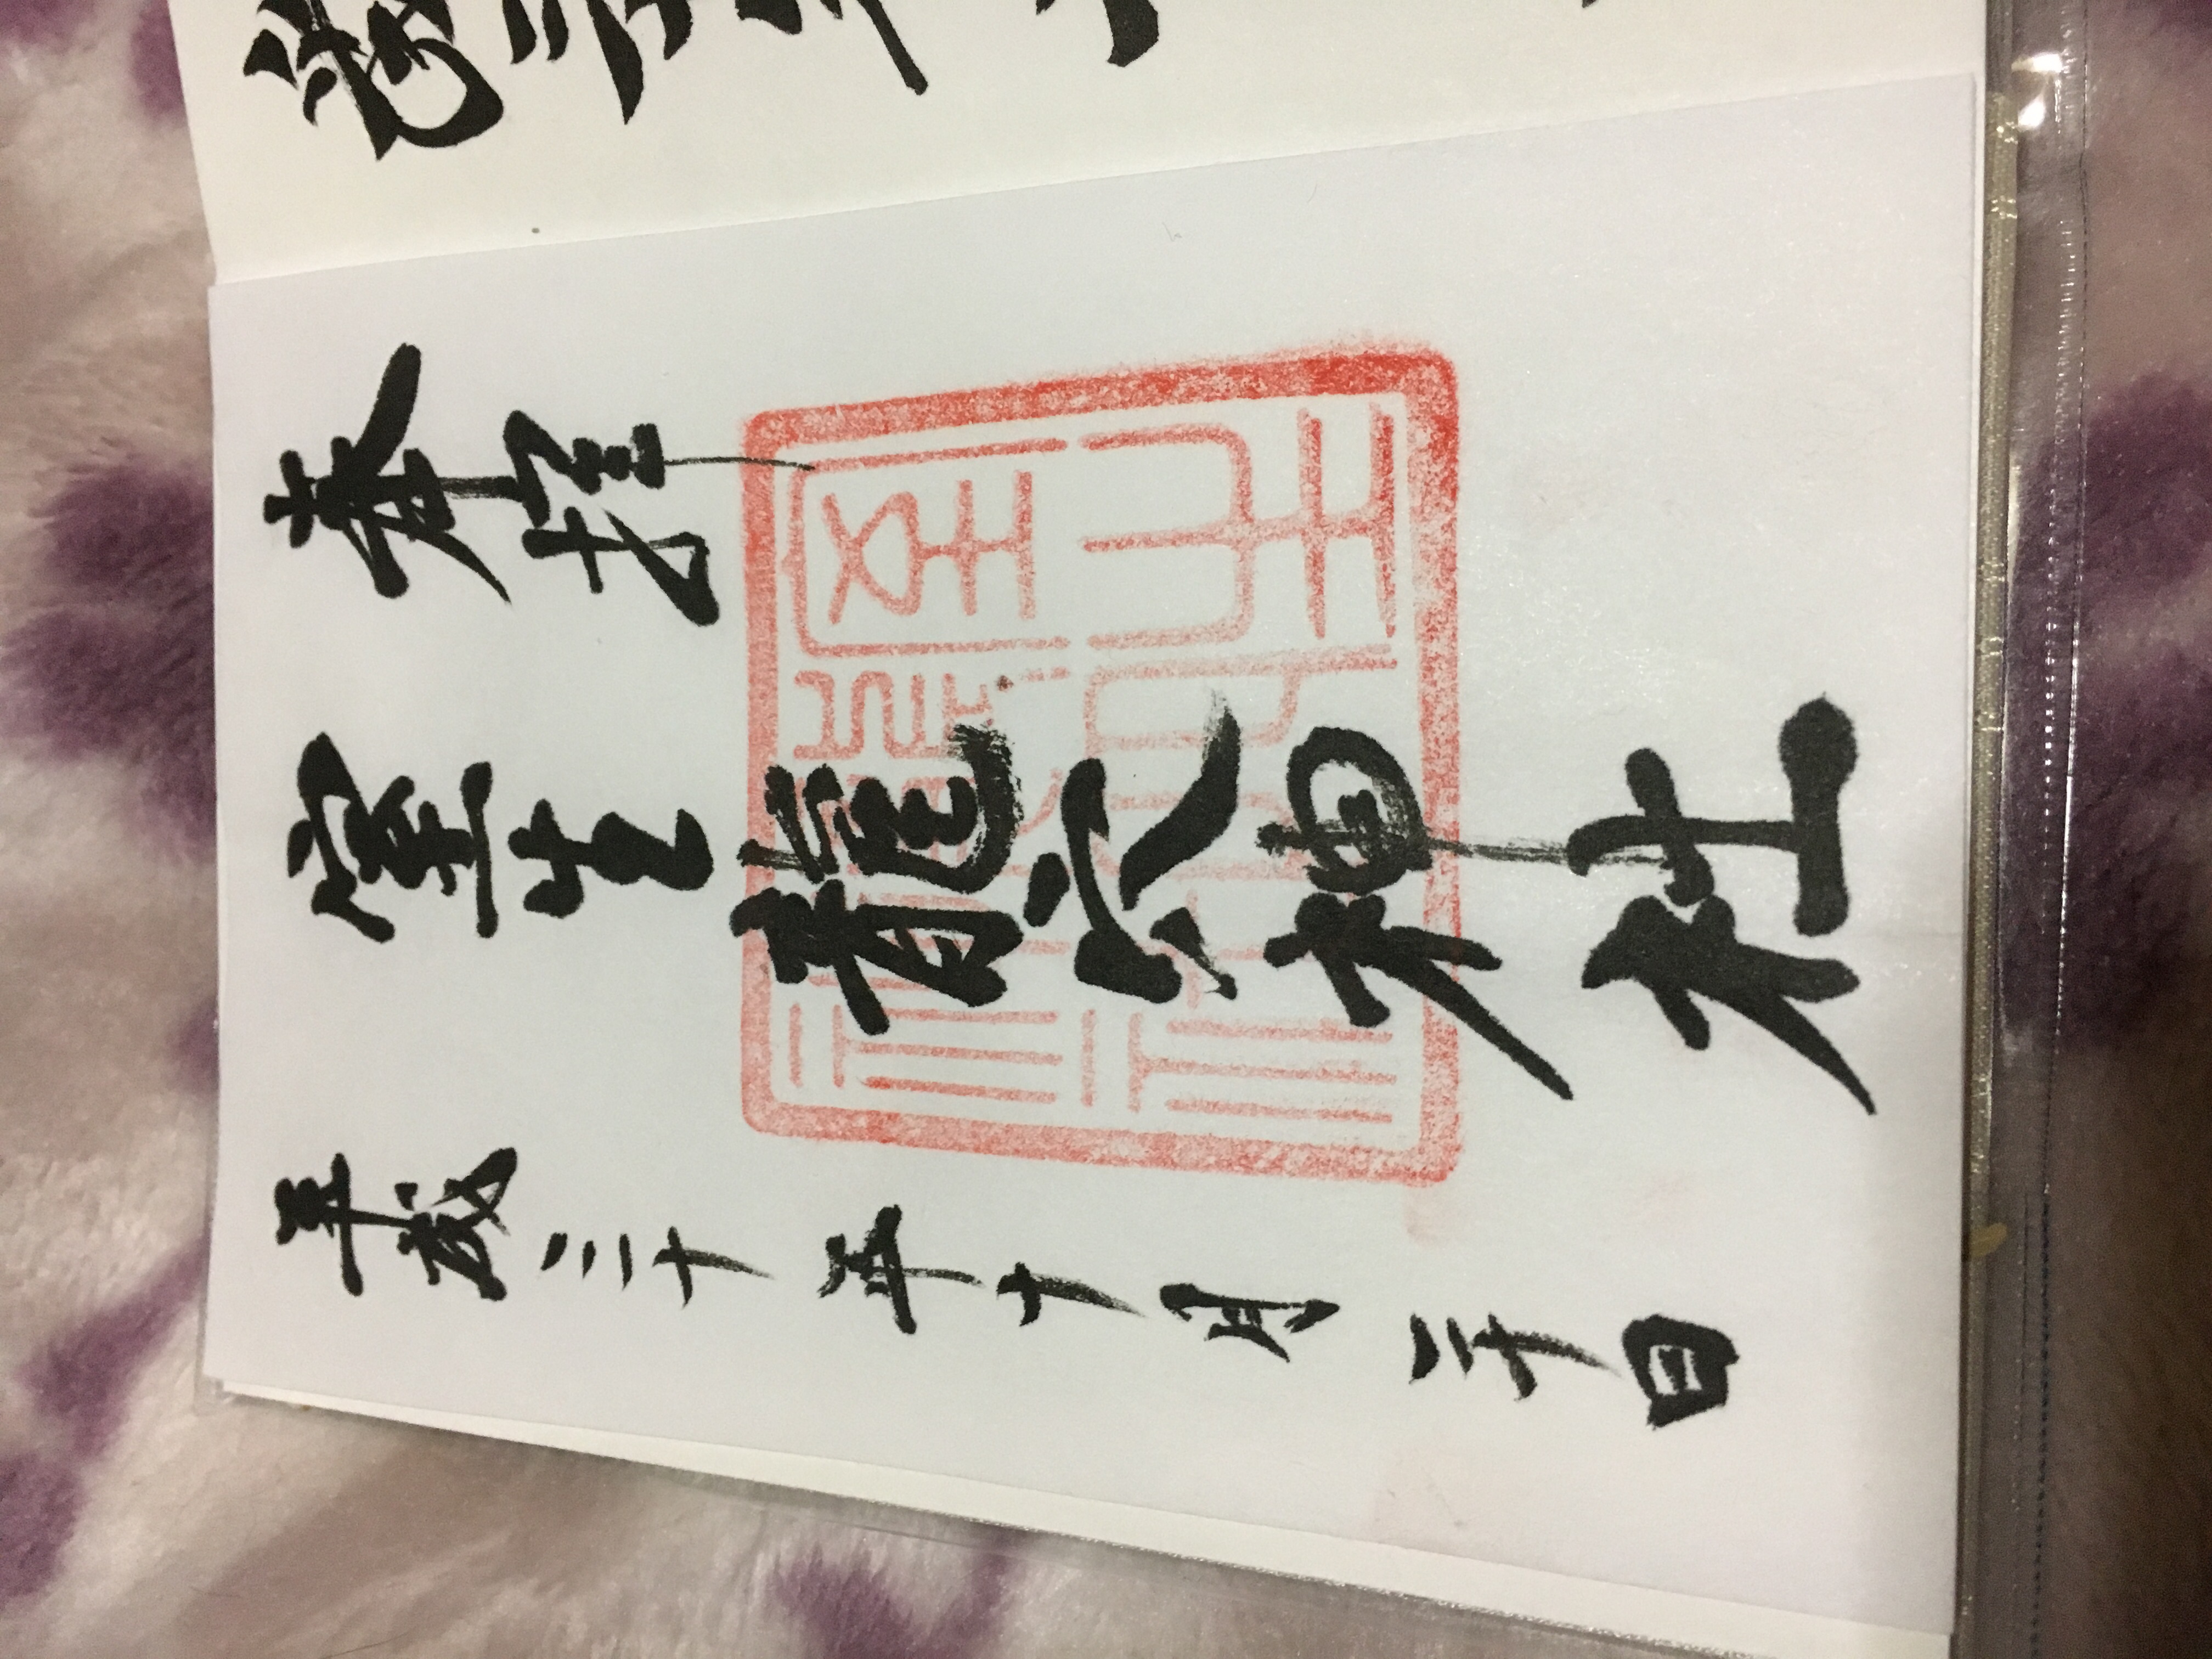 奉拝
室生龍穴神社
平成三十年十月二十日